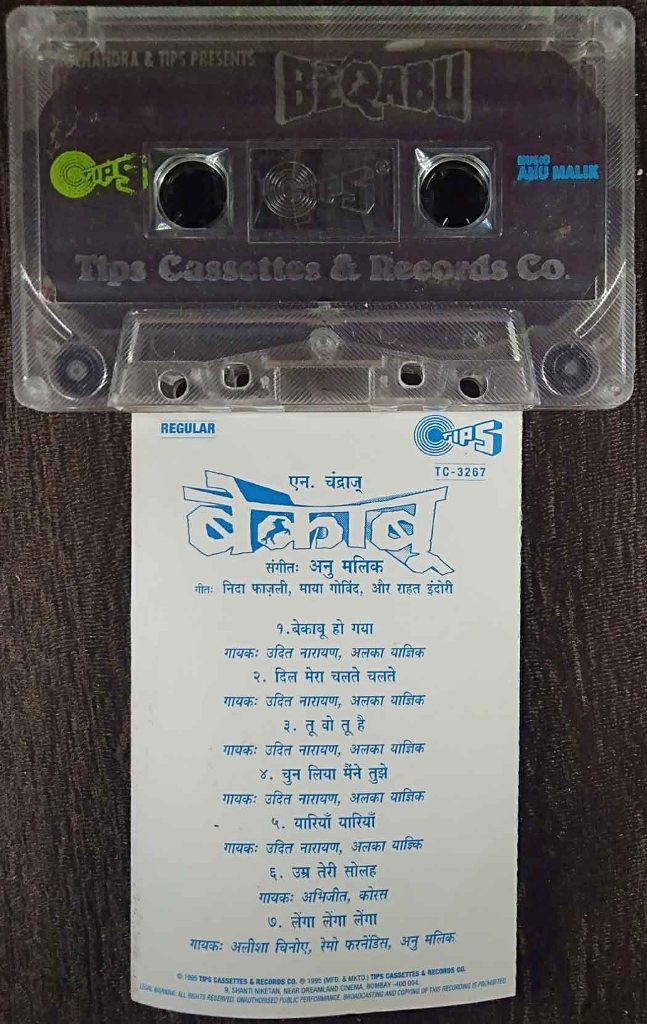 & TIPS PRESENTS
BEQABU
TIPS
TIPS
MUSIC
ANU MALIK
Tips Cassettes & Records Co.
REGULAR
TIPS
TC-3267
एन. चंद्राज्
बेकाबू
संगीतः अनु मलिक
गीतः निदा फाज़ली, माया गोविंद, और राहत इंदोरी
१.बेकाबू हो गया
गायकः उदित नारायण, अलका याज्ञिक
२. दिल मेरा चलते चलते
गायकः उदित नारायण, अलका याज्ञिक
३. तू वो तू है
गायकः उदित नारायण, अलका याज्ञिक
४. चुन लिया मैंने तुझे
गायकः उदित नारायण, अलका याज्ञिक
५. यारियाँ यारियाँ
गायकः उदित नारायण, अलका याज्ञिक
६. उम्र तेरी सोलह
गायकः अभिजीत, कोरस
७. लेंगा लेंगा लेंगा
गायकः अलीशा चिनोए, रेमो फरनेंडिस, अनु मलिक
© 1995 TIPS CASSETTES & RECORDS CO. ℗ 1995 (MFD. & MKTD.) TIPS CASSETTES & RECORDS CO.
9, SHANTI NIKETAN, NEAR DREAMLAND CINEMA, BOMBAY -400 004.
LEGAL WARNING: ALL RIGHTS RESERVED. UNAUTHORISED PUBLIC PERFORMANCE. BROADCASTING AND COPYING OF THIS RECORDING IS PROHIBITED